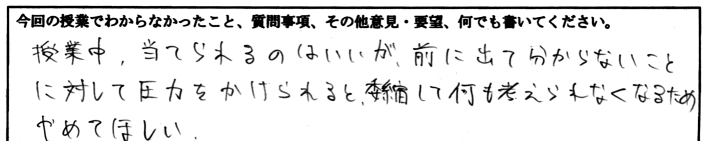 今回の授業でわからなかったこと、質問事項、その他意見・要望、何でも書いてください。
授業中, 当てられるのはいいが, 前に出て分からないこと
に対して圧力をかけられると, 委縮して何も考えられなくなるため
やめてほしい.